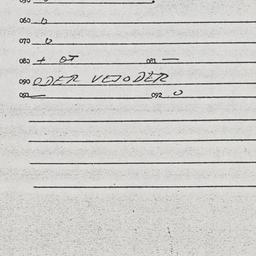 060 0
070 0
080 + OT 081 —
090 ODER VEJODER
091 — 092 0